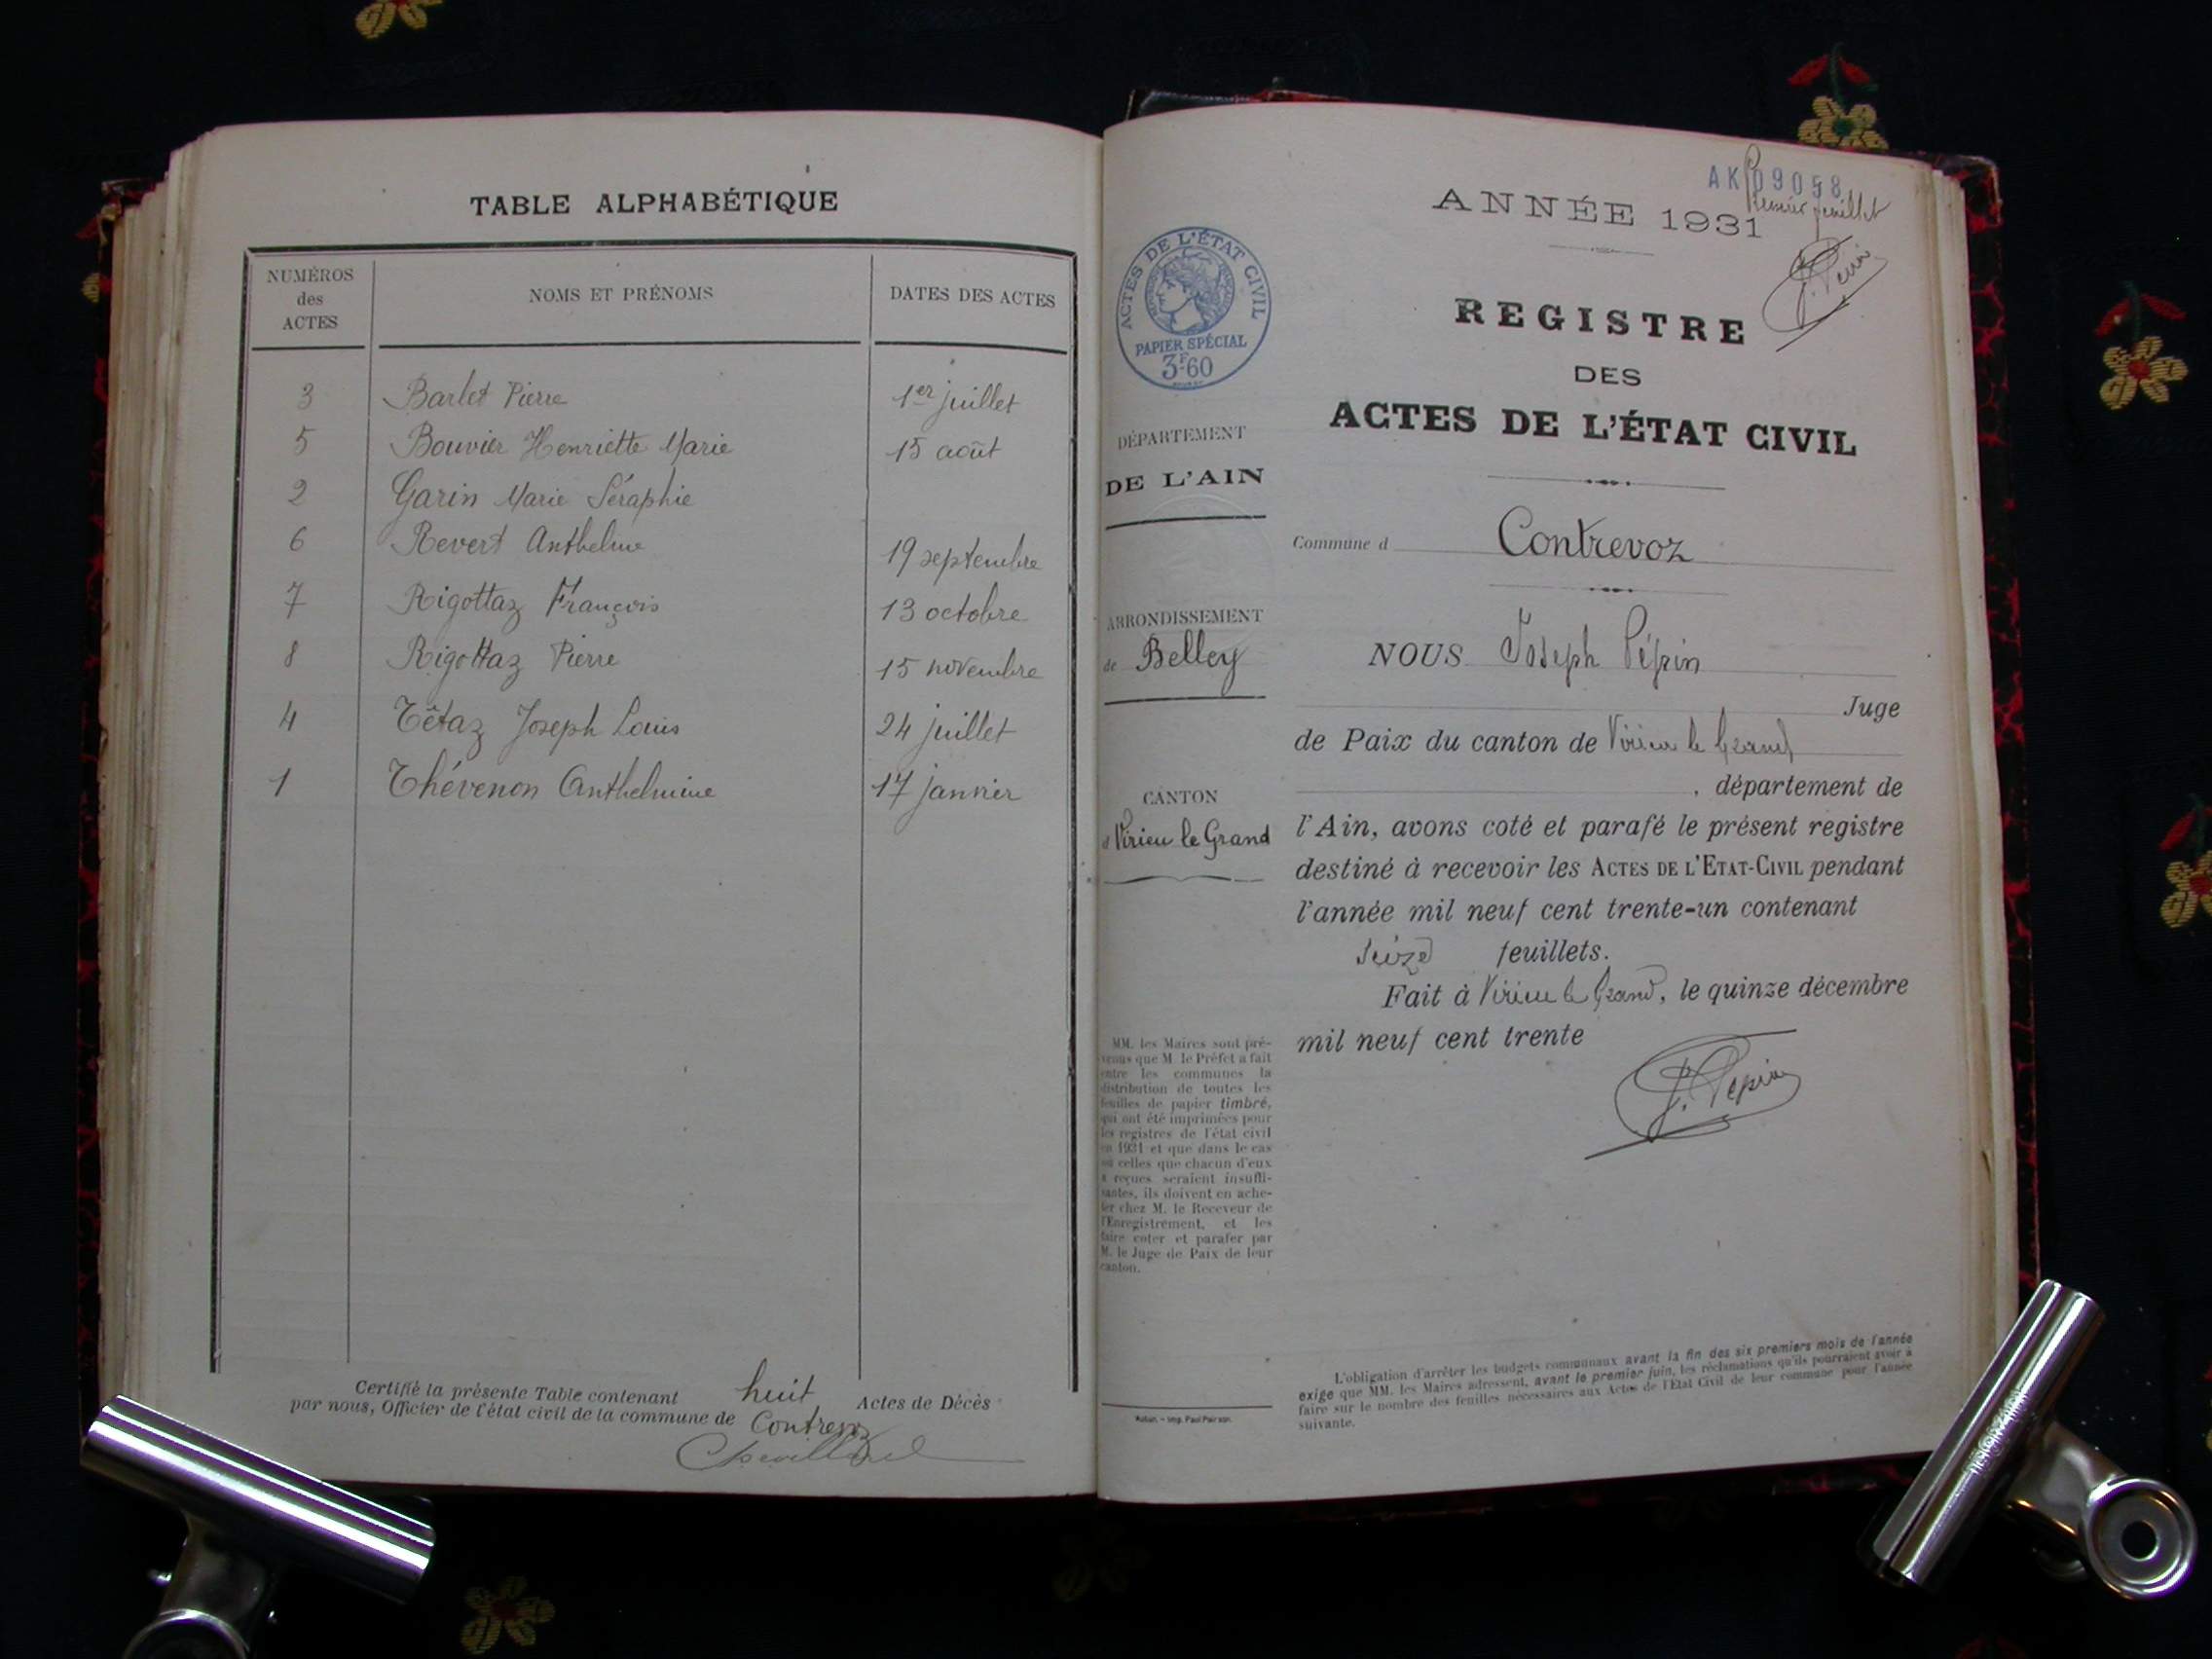 TABLE ALPHABÉTIQUE
NUMÉROS des ACTES NOMS ET PRÉNOMS DATES DES ACTES
3 Barlet Pierre 1er juillet
5 Bouvier Henriette Marie 15 août
2 Garin Marie Séraphie
6 Revert Anthelme 19 septembre
7 Rigottaz François 13 octobre
8 Rigottaz Pierre 15 novembre
4 Têtaz Joseph Louis 24 juillet
1 Thévenon Anthelmine 17 janvier
Certifié la présente Table contenant huit Actes de Décès
par nous, Officier de l'état civil de la commune de Contrevoz
AK 09058
Premier feuillet
ANNÉE 1931
J. Pépin
ACTES DE L'ÉTAT CIVIL
PAPIER SPÉCIAL
3F60
REGISTRE
DES
ACTES DE L'ÉTAT CIVIL
DÉPARTEMENT
DE L'AIN
Commune d Contrevoz
ARRONDISSEMENT
de Belley
CANTON
d Virieu le Grand
NOUS Joseph Pépin
Juge
de Paix du canton de Virieu le Grand
, département de
l'Ain, avons coté et parafé le présent registre
destiné à recevoir les ACTES DE L'ETAT-CIVIL pendant
l'année mil neuf cent trente-un contenant
seize feuillets.
Fait à Virieu le Grand, le quinze décembre
mil neuf cent trente
J. Pépin
MM. les Maires sont pré-
venus que M. le Préfet a fait
entre les communes la
distribution de toutes les
feuilles de papier timbré,
qui ont été imprimées pour
les registres de l'état civil
en 1931 et que dans le cas
où celles que chacun d'eux
a reçues seraient insuffi-
santes, ils doivent en ache-
ter chez M. le Receveur de
l'Enregistrement, et les
faire coter et parafer par
M. le Juge de Paix de leur
canton.
L'obligation d'arrêter les budgets communaux avant la fin des six premiers mois de l'année
exige que MM. les Maires adressent, avant le premier juin, les réclamations qu'ils pourraient avoir à
faire sur le nombre des feuilles nécessaires aux Actes de l'Etat Civil de leur commune pour l'année
suivante.